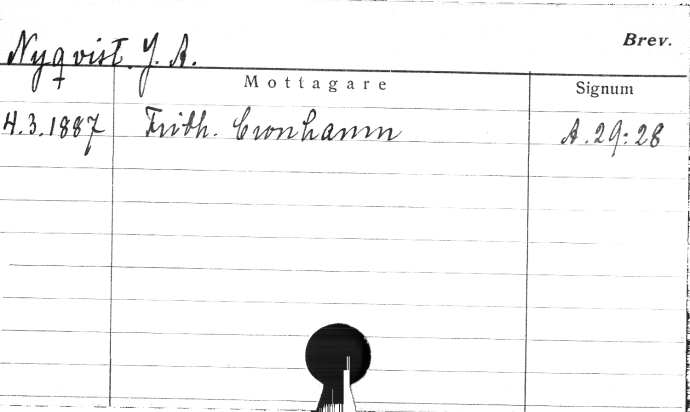 Brev.
Nyqvist. J. A.
Mottagare
Signum
4.3.1887 Frith. Cronhamn A.29:28